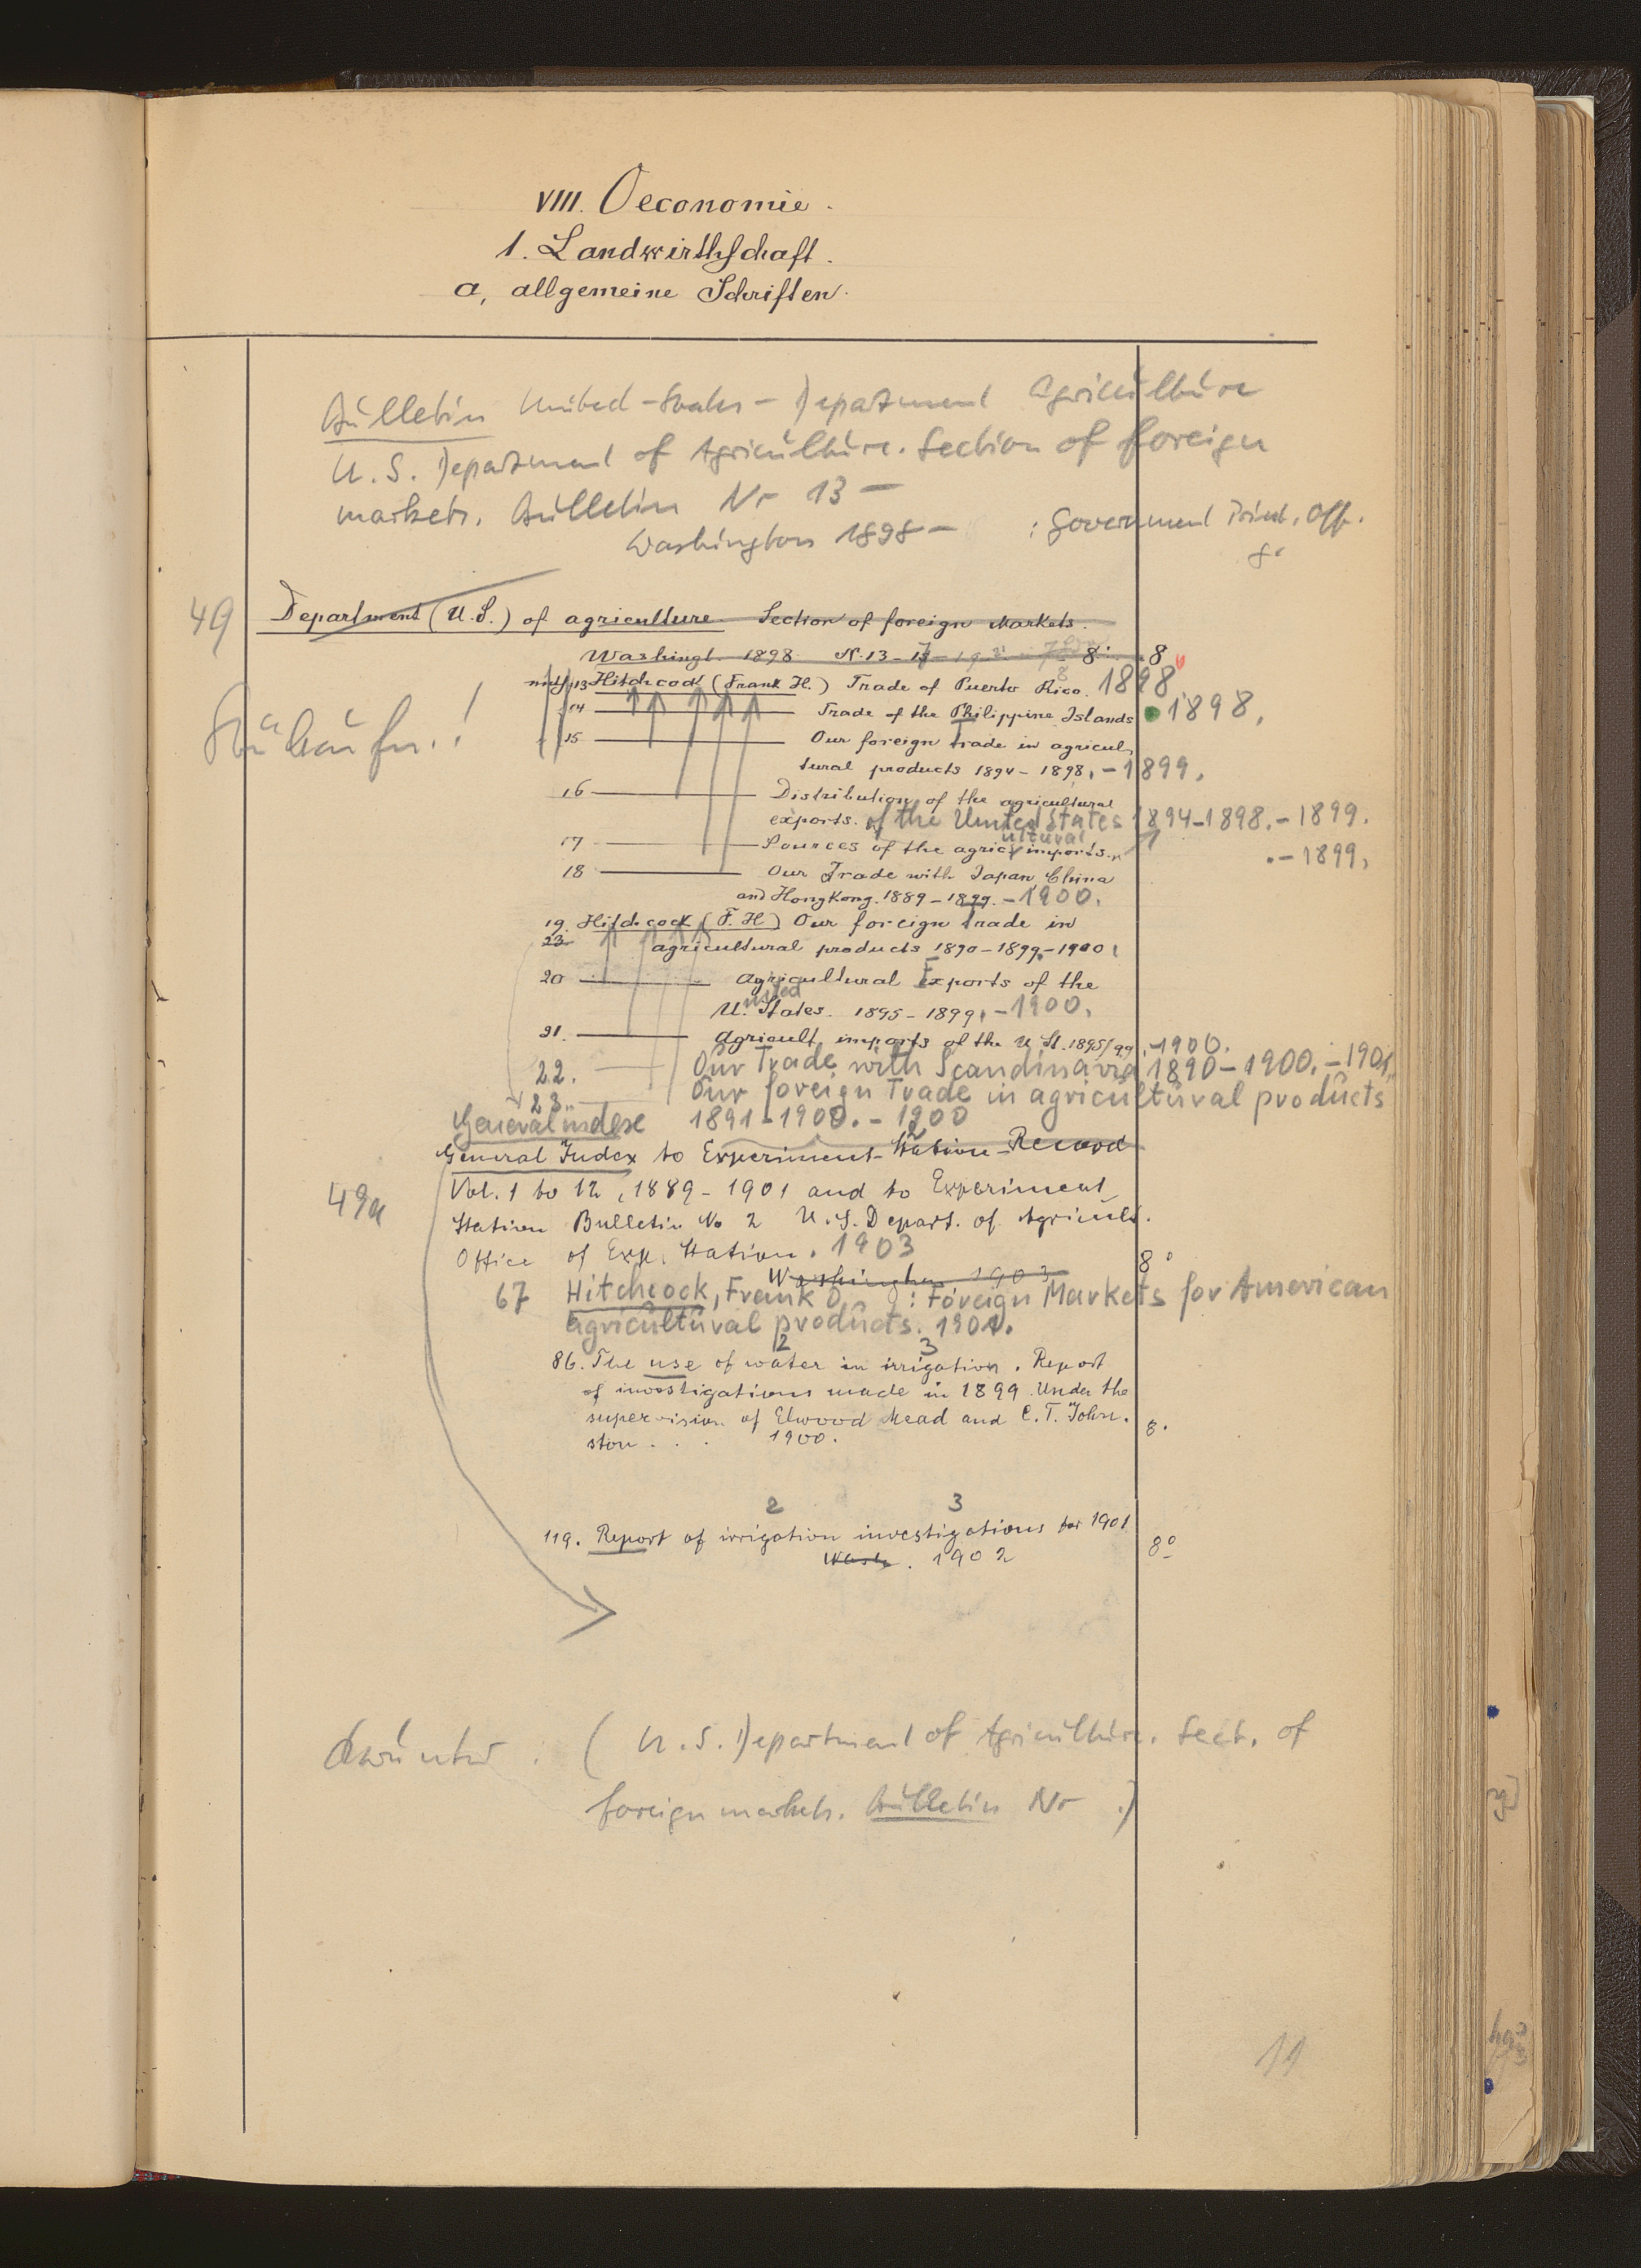 VIII. Oeconomie.
1. Landwirthschaft.
a, allgemeine Schriften.
Bulletin United-States-Department Agriculture
U. S. Department of Agriculture. Section of foreign
markets. Bulletin Nr 13 —
Washington 1898 — : Government Print. Off.
8°
49 Department (U. S.) of agriculture. Section of foreign Markets.
Washingt. 1898 N. 13-17 8° 8
13 Hitchcock (Frank H.) Trade of Puerto Rico. 1898
14 Trade of the Philippine Islands 1898.
15 Our foreign trade in agricul
tural products 1894-1898. - 1899.
16 Distribution of the agricultural
exports. of the United States 1894-1898. - 1899.
17 Sources of the agricultural imports. - 1899.
18 Our Trade with Japan, China
and HongKong. 1889-1899. - 1900.
19. Hitchcock (F. H.) Our foreign trade in
23 agricultural products 1890-1899. - 1900.
20 Agricultural Exports of the
United States. 1895-1899. - 1900.
21. Agricult. imports of the U. St. 1895/99. - 1900.
22. Our Trade with Scandinavia 1890-1900. - 1901.
23. Our foreign Trade in agricultural products
Generalindex 1891-1900. - 1900
General Index to Experiment-Station-Record
49a Vol. 1 to 12, 1889-1901 and to Experiment
Station Bulletin No 2 U. S. Depart. of Agricult.
Office of Exp. Station. 1903 8°
Washington 1903
67 Hitchcock, Frank : Foreign Markets for American
agricultural products. 1901.
2 3
86. The use of water in irrigation. Report
of investigations made in 1899. Under the
supervision of Elwood Mead and C. T. John-
ston . . . 1900. 8.
2 3
119. Report of irrigation investigations for 1901
Wash. 1902 8°
darunter : ( U. S. Department of Agriculture. Sect. of
foreign markets. Bulletin Nr .)
11